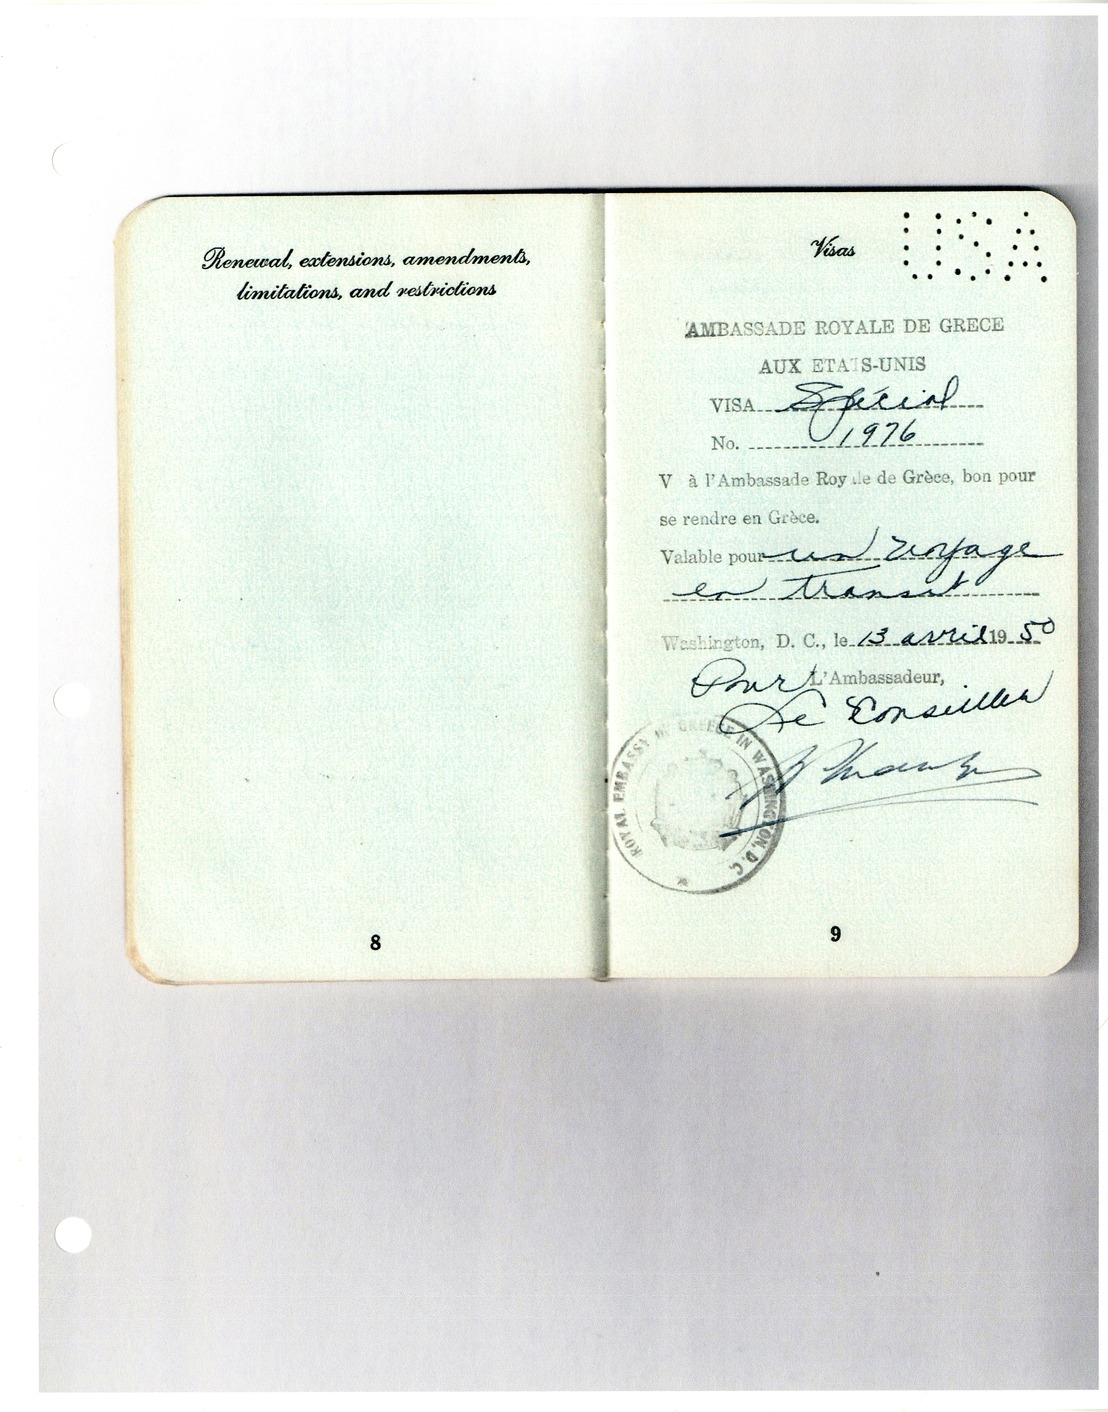 Renewal, extensions, amendments,
limitations, and restrictions
8
Visas
USA
AMBASSADE ROYALE DE GRECE
AUX ETATS-UNIS
VISA Spécial
No. 1976
V à l'Ambassade Royale de Grèce, bon pour
se rendre en Grèce.
Valable pour un voyage
en transit
Washington, D. C., le 13 avril 1950
Pour L'Ambassadeur,
Le Conseiller
ROYAL EMBASSY OF GREECE IN WASHINGTON, D.C.
9